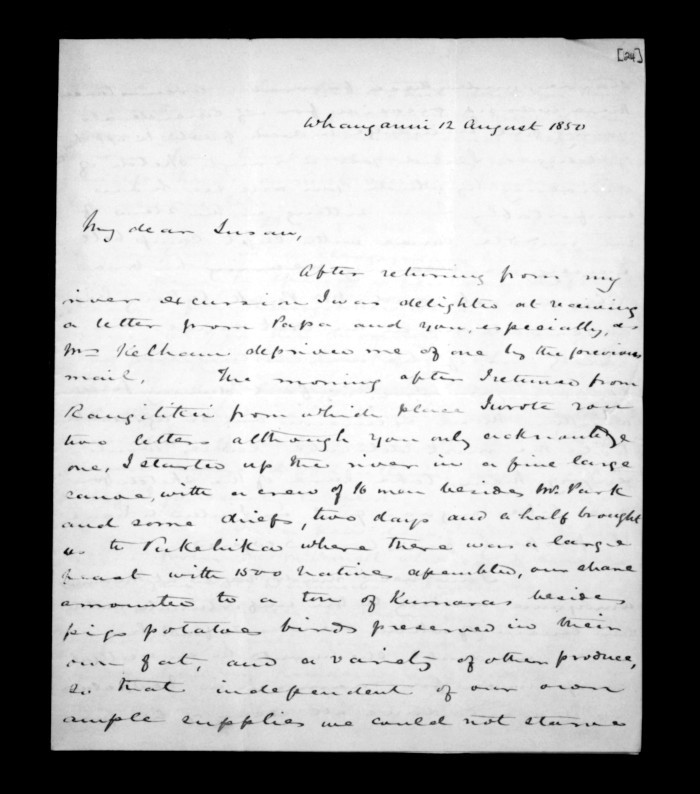 [24]
Whanganui 12 August 1850
My dear Susan,
After returning from my
river excursion I was delighted at receiving
a letter from Papa and you, especially, as
Mr Kelham deprived me of one by the previous
mail. The morning after I returned from
Rangitikei from which place I wrote you
two letters although you only acknowledge
one, I started up the river in a fine large
canoe, with a crew of 16 men besides Mr Park
and some chiefs, two days and a half brought
us to Pukehika where there was a large
feast with 1500 natives assembled, our share
amounted to a ton of Kumaras besides
pigs potatoes birds preserved in their
own fat, and a variety of other produce,
so that independent of our own
ample supplies we could not starve